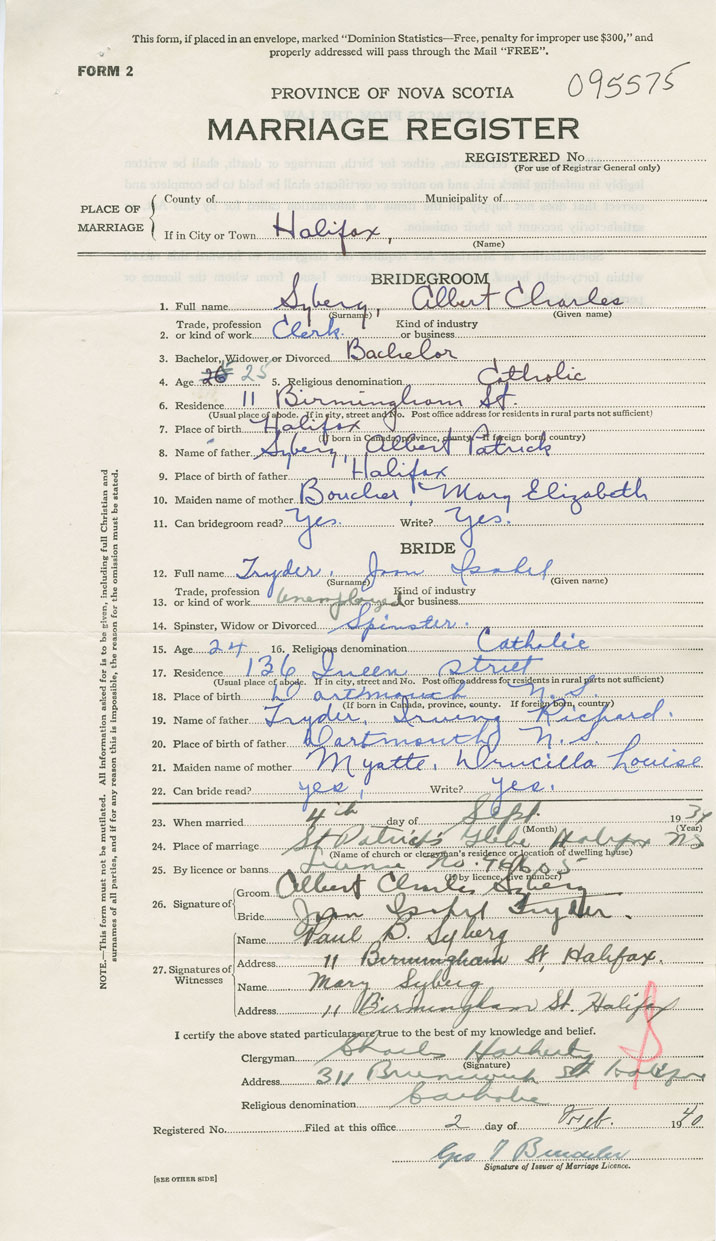 This form, if placed in an envelope, marked "Dominion Statistics—Free, penalty for improper use $300," and
properly addressed will pass through the Mail "FREE".
FORM 2
095575
PROVINCE OF NOVA SCOTIA
MARRIAGE REGISTER
REGISTERED No.
(For use of Registrar General only)
PLACE OF MARRIAGE
County of Municipality of
If in City or Town Halifax,
(Name)
BRIDEGROOM
1. Full name Syberg, Albert Charles
(Surname) (Given name)
2. Trade, profession or kind of work Clerk Kind of industry or business
3. Bachelor, Widower or Divorced Bachelor
4. Age 25 5. Religious denomination Catholic
6. Residence 11 Birmingham St.
(Usual place of abode. If in city, street and No. Post office address for residents in rural parts not sufficient)
7. Place of birth Halifax
(If born in Canada, province, county. If foreign born, country)
8. Name of father Syberg, Albert Patrick
9. Place of birth of father Halifax
10. Maiden name of mother Boucher, Mary Elizabeth
11. Can bridegroom read? Yes. Write? Yes.
BRIDE
12. Full name Tryder, Joan Isabel
(Surname) (Given name)
13. Trade, profession or kind of work Unemployed Kind of industry or business
14. Spinster, Widow or Divorced Spinster.
15. Age 24 16. Religious denomination Catholic
17. Residence 136 Queen Street
(Usual place of abode. If in city, street and No. Post office address for residents in rural parts not sufficient)
18. Place of birth Dartmouth N.S.
(If born in Canada, province, county. If foreign born, country)
19. Name of father Tryder, Irving Richard.
20. Place of birth of father Dartmouth, N.S.
21. Maiden name of mother Myatte, Drucilla Louise
22. Can bride read? yes, Write? yes.
23. When married 4th day of Sept. 193
(Month) (Year)
24. Place of marriage St Patrick's Glebe Halifax NS
(Name of church or clergyman's residence or location of dwelling house)
25. By licence or banns License No.
(If by licence, give number)
26. Signature of
Groom Albert Charles Syberg
Bride Joan Isabel Tryder.
27. Signatures of Witnesses
Name Paul B. Syberg
Address 11 Birmingham St, Halifax.
Name Mary Syberg
Address 11 Birmingham St. Halifax
I certify the above stated particulars are true to the best of my knowledge and belief.
Clergyman Charles
(Signature)
Address 311 Brunswick St Halifax
Religious denomination Catholic
Registered No. Filed at this office 2 day of Feb. 1940
Geo
Signature of Issuer of Marriage Licence.
[SEE OTHER SIDE]
NOTE.—This form must not be mutilated. All information asked for is to be given, including full Christian and
surnames of all parties, and if for any reason this is impossible, the reason for the omission must be stated.